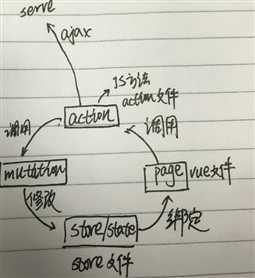 serve
ajax
JS方法
action文件
action
调用
调用
mutation
page vue文件
修改
store/state
绑定
store文件